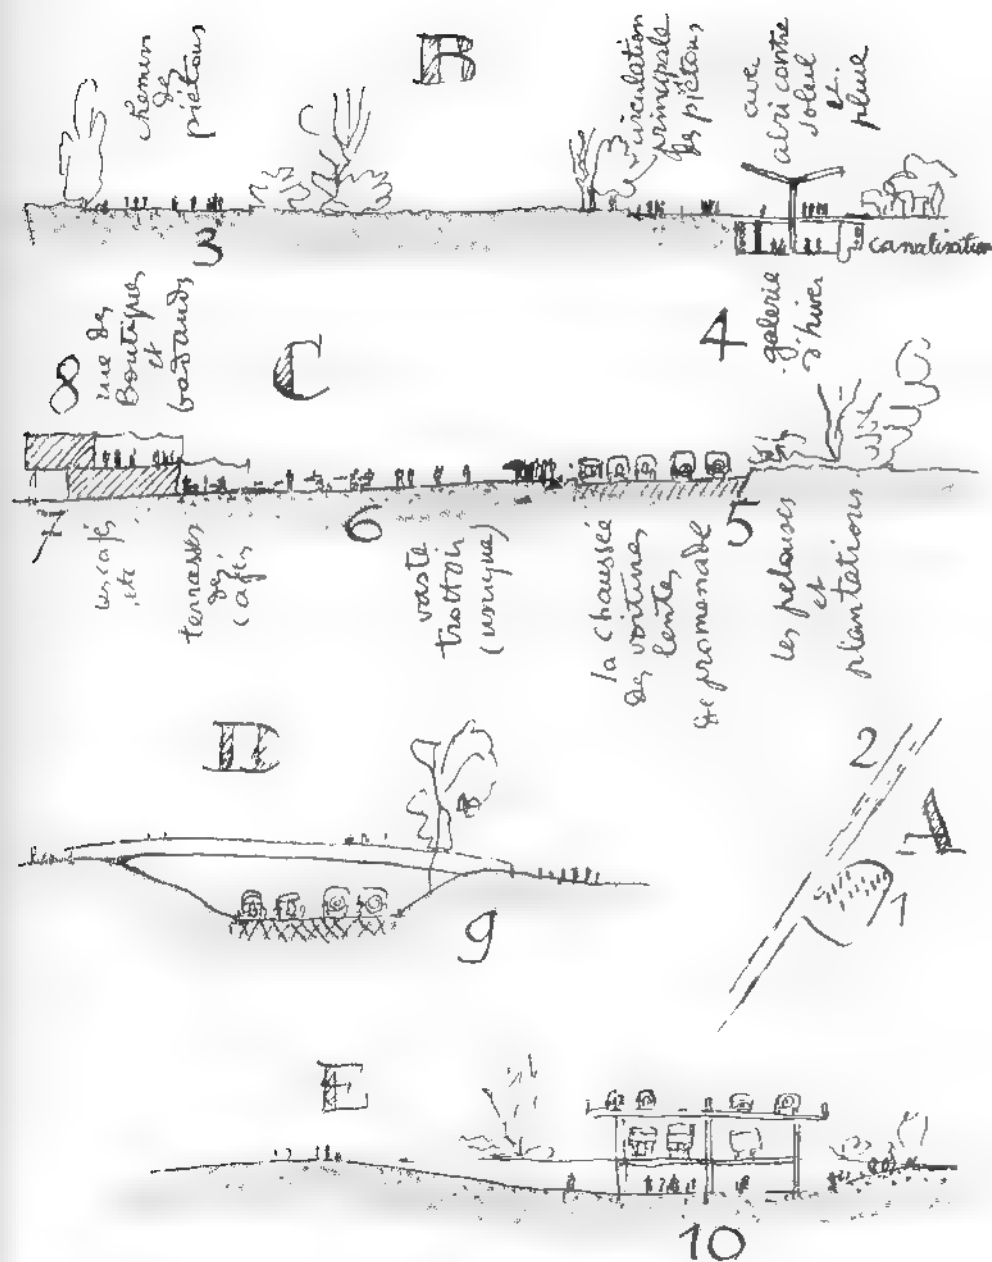 B
chemin
de
piétons
circulation
principale
de piétons
avec
abri contre
soleil
et
pluie
3
canalisation
4
galerie
d'hiver
8
rue des
Boutiques
et
badauds
C
7
les cafés
etc
terrasses
des
cafés
6
vaste
trottoir
(unique)
la chaussée
des voitures
lentes
de promenade
5
les pelouses
et
plantations
D
9
2
A
1
E
10